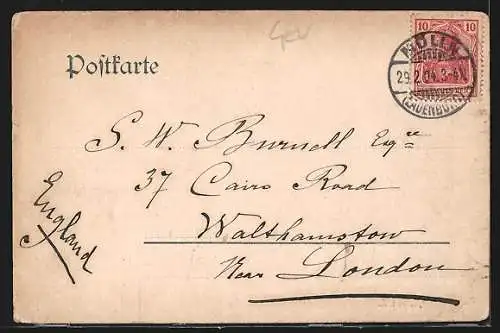 Postkarte
10 10
MÖLLN
29.2.04.3-4N.
(LAUENBURG)
S. W. Burnell Esqre
37 Cairo Road
Walthamstow
Near London
England